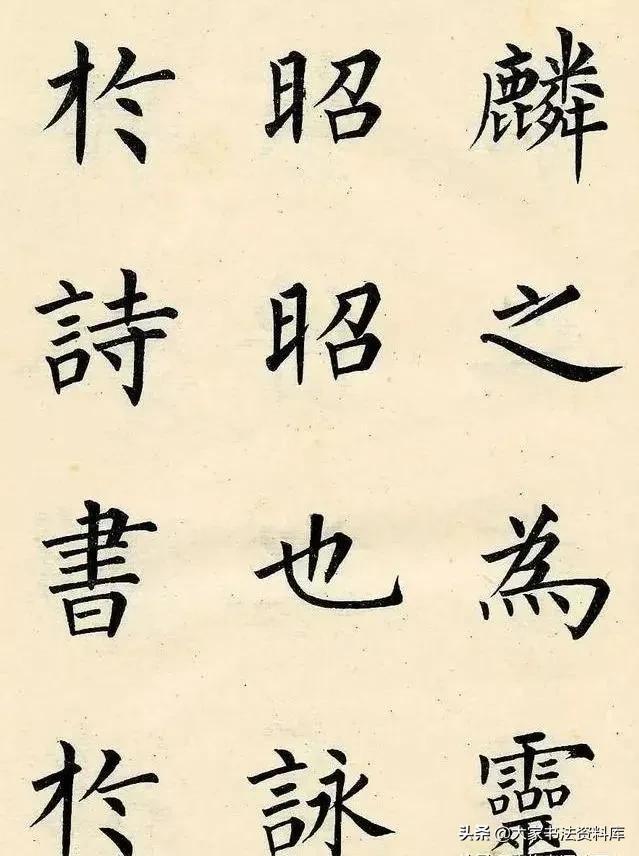 麟之為靈
昭昭也詠
於詩書於
头条 @大家书法资料库